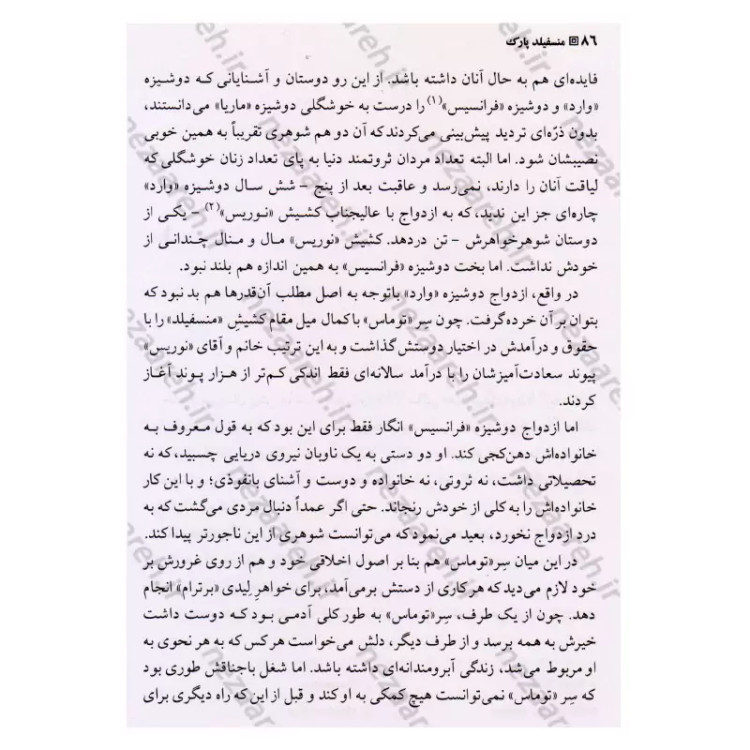 ۸۶ ▣ منسفیلد پارک
فایده‌ای هم به حال آنان داشته باشد. از این رو دوستان و آشنایانی که دوشیزه
«وارد» و دوشیزه «فرانسیس»(۱) را درست به خوشگلی دوشیزه «ماریا» می‌دانستند،
بدون ذرّه‌ای تردید پیش‌بینی می‌کردند که آن دو هم شوهری تقریباً به همین خوبی
نصیبشان شود. اما البته تعداد مردان ثروتمند دنیا به پای تعداد زنان خوشگلی که
لیاقت آنان را دارند، نمی‌رسد و عاقبت بعد از پنج - شش سال دوشیزه «وارد»
چاره‌ای جز این ندید، که به ازدواج با عالیجناب کشیش «نوریس»(۲) - یکی از
دوستان شوهرخواهرش - تن دردهد. کشیش «نوریس» مال و منال چندانی از
خودش نداشت. اما بخت دوشیزه «فرانسیس» به همین اندازه هم بلند نبود.
در واقع، ازدواج دوشیزه «وارد» باتوجه به اصل مطلب آن‌قدرها هم بد نبود که
بتوان بر آن خرده گرفت. چون سِر «توماس» باکمال میل مقام کشیشِ «منسفیلد» را با
حقوق و درآمدش در اختیار دوستش گذاشت و به این ترتیب خانم و آقای «نوریس»
پیوند سعادت‌آمیزشان را با درآمد سالانه‌ای فقط اندکی کم‌تر از هزار پوند آغاز
کردند.
اما ازدواج دوشیزه «فرانسیس» انگار فقط برای این بود که به قول معروف به
خانواده‌اش دهن‌کجی کند. او دو دستی به یک ناوبان نیروی دریایی چسبید، که نه
تحصیلاتی داشت، نه ثروتی، نه خانواده و دوست و آشنای بانفوذی؛ و با این کار
خانواده‌اش را به کلی از خودش رنجاند. حتی اگر عمداً دنبال مردی می‌گشت که به
درد ازدواج نخورد، بعید می‌نمود که می‌توانست شوهری از این ناجورتر پیدا کند.
در این میان سِر «توماس» هم بنا بر اصول اخلاقی خود و هم از روی غرورش بر
خود لازم می‌دید که هر کاری از دستش برمی‌آمد، برای خواهرِ لیدی «برترام» انجام
دهد. چون از یک طرف، سِر «توماس» به طور کلی آدمی بود که دوست داشت
خیرش به همه برسد و از طرف دیگر، دلش می‌خواست هر کس که به هر نحوی به
او مربوط می‌شد، زندگی آبرومندانه‌ای داشته باشد. اما شغل باجناقش طوری بود
که سِر «توماس» نمی‌توانست هیچ کمکی به او کند و قبل از این که راه دیگری برای
nezaareh.ir